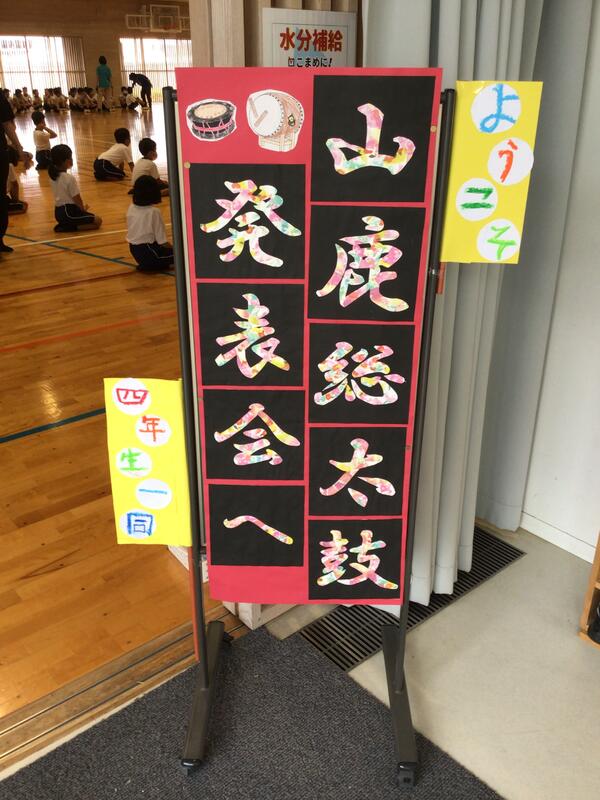 水分補給
こまめに!
ようこそ
山鹿総太鼓
発表会へ
四年生一同